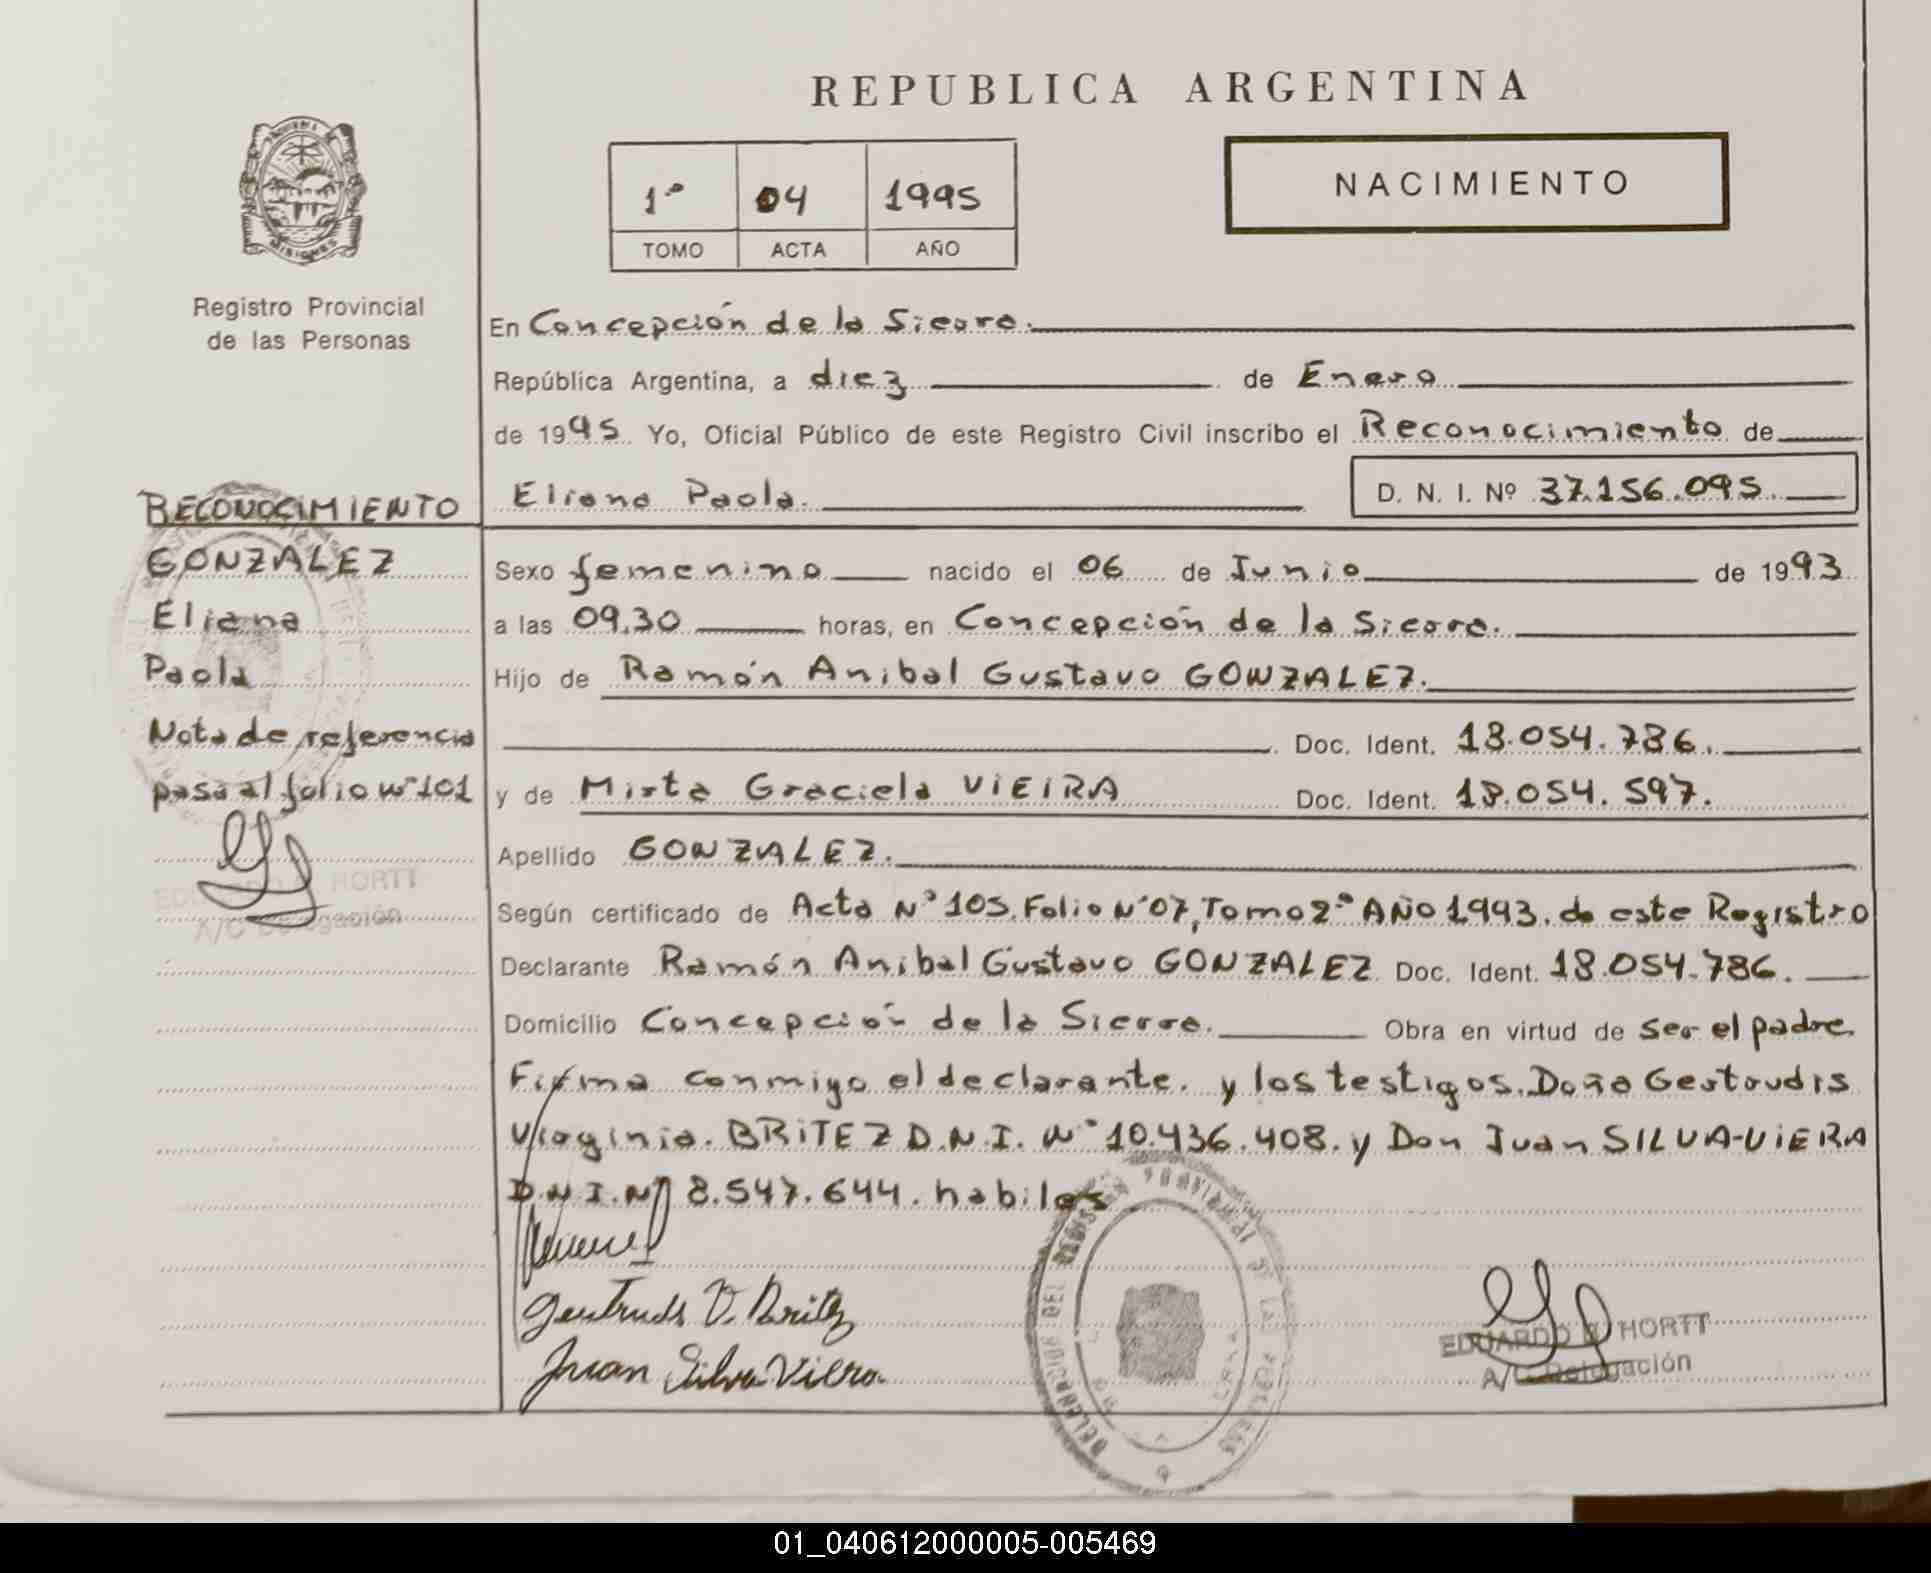 REPUBLICA ARGENTINA
NACIMIENTO
1º 04 1995
TOMO ACTA AÑO
MISIONES
Registro Provincial
de las Personas
En Concepción de la Sierra.
República Argentina, a diez de Enero
de 1995 Yo, Oficial Público de este Registro Civil inscribo el Reconocimiento de
Eliana Paola. D. N. I. Nº 37.156.095.
RECONOCIMIENTO
GONZALEZ
Eliana
Paola
Nota de referencia
pasa al folio Nº 101
EDUARDO HORTT
A/C Delegación
Sexo femenino nacido el 06 de Junio de 1993
a las 09.30 horas, en Concepción de la Sierra.
Hijo de Ramón Anibal Gustavo GONZALEZ.
Doc. Ident. 18.054.786.
y de Mirta Graciela VIEIRA Doc. Ident. 18.054.597.
Apellido GONZALEZ.
Según certificado de Acta Nº 105. Folio Nº 07, Tomo 2º AÑO 1993. de este Registro
Declarante Ramón Anibal Gustavo GONZALEZ Doc. Ident. 18.054.786.
Domicilio Concepción de la Sierra. Obra en virtud de ser el padre
Firma conmigo el declarante. y los testigos. Doña Gertrudis
Virginia. BRITEZ D.N.I. Nº 10.436.408. y Don Juan SILVA-VIERA
D.N.I. Nº 8.547.644. habiles
Gertrudis V. Britez
Juan Silva Viera
DELEGACION DEL REGISTRO PROVINCIAL DE LAS PERSONAS
EDUARDO HORTT
A/C Delegación
01_040612000005-005469